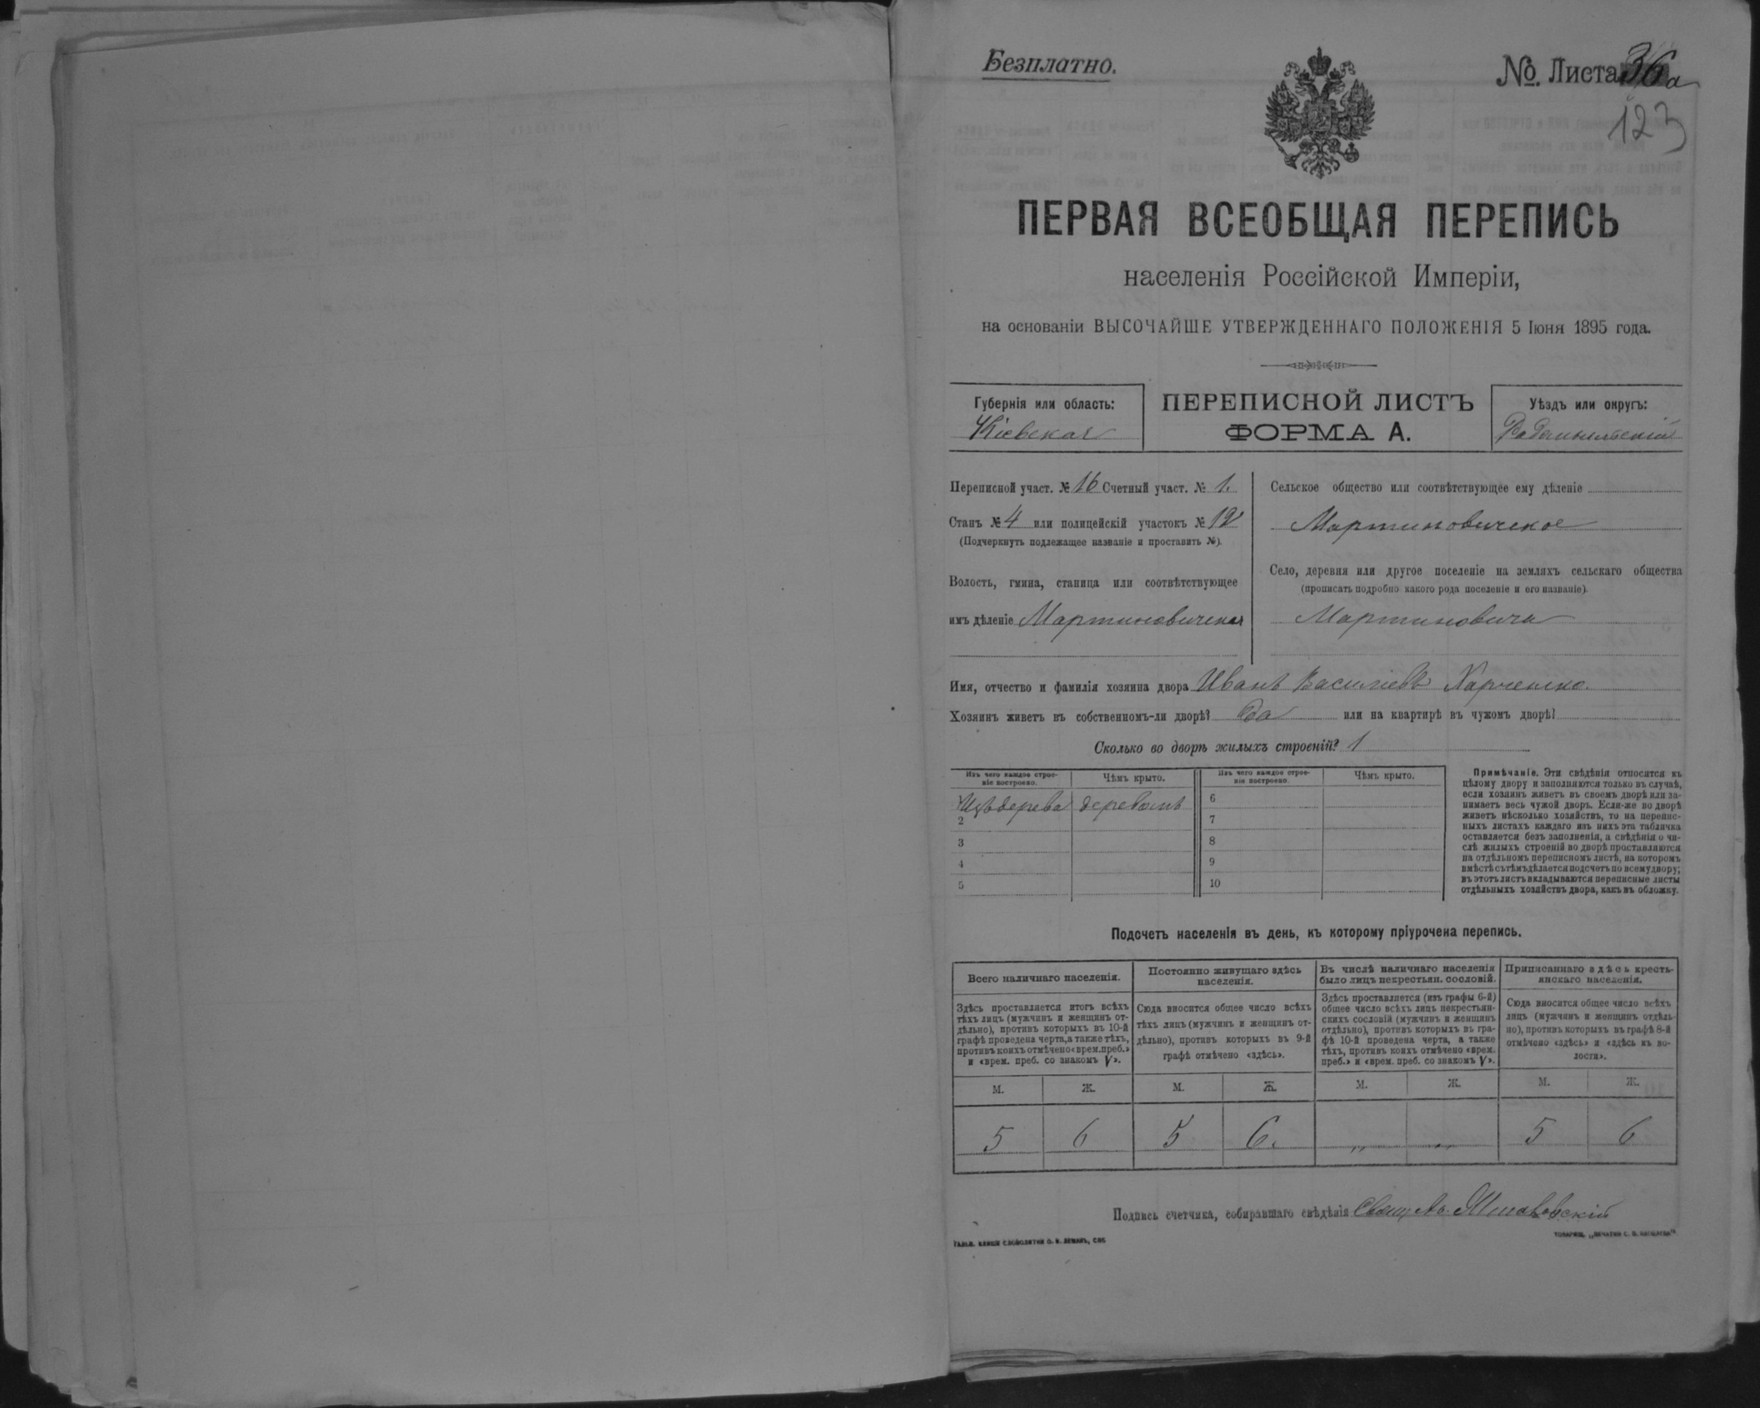 Безплатно.
№. Листа 36а
123
ПЕРВАЯ ВСЕОБЩАЯ ПЕРЕПИСЬ
населенія Россійской Имперіи,
на основаніи ВЫСОЧАЙШЕ УТВЕРЖДЕННАГО ПОЛОЖЕНІЯ 5 Іюня 1895 года.
Губернія или область:
Кіевская
ПЕРЕПИСНОЙ ЛИСТЪ
ФОРМА А.
Уѣздъ или округъ:
Радомысльскій
Переписной участ. № 16 Счетный участ. № 1.
Станъ № 4 или полицейскій участокъ № 12
(Подчеркнуть подлежащее названіе и проставить №).
Волость, гмина, станица или соотвѣтствующее
имъ дѣленіе Мартиновичская
Сельское общество или соотвѣтствующее ему дѣленіе
Мартиновичское
Село, деревня или другое поселеніе на земляхъ сельскаго общества
(прописать подробно какого рода поселеніе и его названіе).
Мартиновичи
Имя, отчество и фамилія хозяина двора Иванъ Василіевъ Харченко.
Хозяинъ живетъ въ собственномъ-ли дворѣ? да или на квартирѣ въ чужомъ дворѣ?
Сколько во дворѣ жилыхъ строеній? 1
Изъ чего каждое строе-
ніе построено.
Чѣмъ крыто.
Изъ чего каждое строе-
ніе построено.
Чѣмъ крыто.
Изъ дерева деревомъ
6
2
7
3
8
4
9
5
10
Примѣчаніе. Эти свѣдѣнія относятся къ
цѣлому двору и заполняются только въ случаѣ,
если хозяинъ живетъ въ своемъ дворѣ или за-
нимаетъ весь чужой дворъ. Если-же во дворѣ
живетъ нѣсколько хозяйствъ, то на перепис-
ныхъ листахъ каждаго изъ нихъ эта табличка
оставляется безъ заполненія, а свѣдѣнія о чи-
слѣ жилыхъ строеній во дворѣ проставляются
на отдѣльномъ переписномъ листѣ, на которомъ
вмѣстѣ съ тѣмъ дѣлается подсчетъ по всему двору;
въ этотъ листъ вкладываются переписные листы
отдѣльныхъ хозяйствъ двора, какъ въ обложку.
Подсчетъ населенія въ день, къ которому пріурочена перепись.
Всего наличнаго населенія.
Здѣсь проставляется итогъ всѣхъ
тѣхъ лицъ (мужчинъ и женщинъ от-
дѣльно), противъ которыхъ въ 10-й
графѣ проведена черта, а также тѣхъ,
противъ коихъ отмѣчено «врем. преб.»
и «врем. преб. со знакомъ V».
Постоянно живущаго здѣсь
населенія.
Сюда вносится общее число всѣхъ
тѣхъ лицъ (мужчинъ и женщинъ от-
дѣльно), противъ которыхъ въ 9-й
графѣ отмѣчено «здѣсь».
Въ числѣ наличнаго населенія
было лицъ некрестьян. сословій.
Здѣсь проставляется (изъ графы 6-й)
общее число всѣхъ лицъ некрестьян-
скихъ сословій (мужчинъ и женщинъ
отдѣльно), противъ которыхъ въ гра-
фѣ 10-й проведена черта, а также
тѣхъ, противъ коихъ отмѣчено «врем.
преб.» и «врем. преб. со знакомъ V».
Приписаннаго здѣсь кресть-
янскаго населенія.
Сюда вносится общее число всѣхъ
лицъ (мужчинъ и женщинъ отдѣль-
но), противъ которыхъ въ графѣ 8-й
отмѣчено «здѣсь» и «здѣсь въ во-
лости».
М. Ж. М. Ж. М. Ж. М. Ж.
5 6 5 6. „ „ 5 6
Подпись счетчика, собиравшаго свѣдѣнія Свящ.